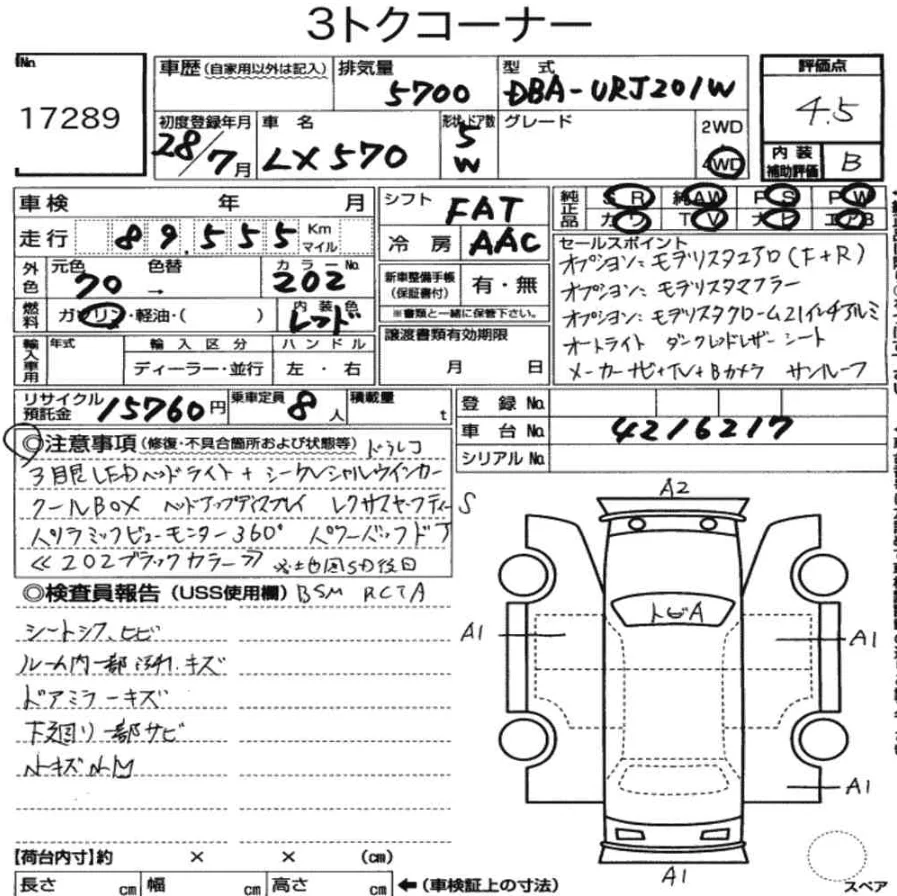 3トクコーナー
No.
17289
車歴 (自家用以外は記入)
排気量
5700
型式
DBA-URJ201W
評価点
4.5
初度登録年月
28/7月
車名
LX570
形状・ドア数
5
W
グレード
2WD
4WD
内装
補助評価
B
車検 年 月
走行 89,555 Km
マイル
シフト
FAT
冷房
AAC
純正品
SR 純AW PS PW
カワ TV ナビ エアB
外色
元色 色替
70 →
カラーNo.
202
新車整備手帳
(保証書付)
有・無
※書類と一緒に保管下さい。
燃料
ガソリン・軽油・( )
内装色
レッド
セールスポイント
オプション:モデリスタエアロ(F+R)
オプション:モデリスタマフラー
オプション:モデリスタクローム21インチアルミ
オートライト ダークレッドレザーシート
メーカーナビ+TV+Bカメラ サンルーフ
輸入車用
年式
輸入区分
ディーラー・並行
ハンドル
左・右
譲渡書類有効期限
月 日
リサイクル
預託金
15760円
乗車定員
8人
積載量
t
登録No.
車台No.
4216217
シリアルNo.
◎注意事項(修復・不具合箇所および状態等) ドラレコ
3眼LEDヘッドライト+シークレンシャルウインカー
クールBOX ヘッドアップディスプレイ レクサスセーフティーS
パノラミックビューモニター360° パワーバックドア
≪202ブラックカラー≫ ※地図SD後日
◎検査員報告(USS使用欄) BSM RCTA
シートシワ、ヒビ
ルーム内一部汚れ、キズ
ドアミラーキズ
下廻り一部サビ
小キズ小凹
A2
トビA
A1
A1
A1
A1
スペア
【荷台内寸】約 × × (cm)
長さ cm 幅 cm 高さ cm ←(車検証上の寸法)